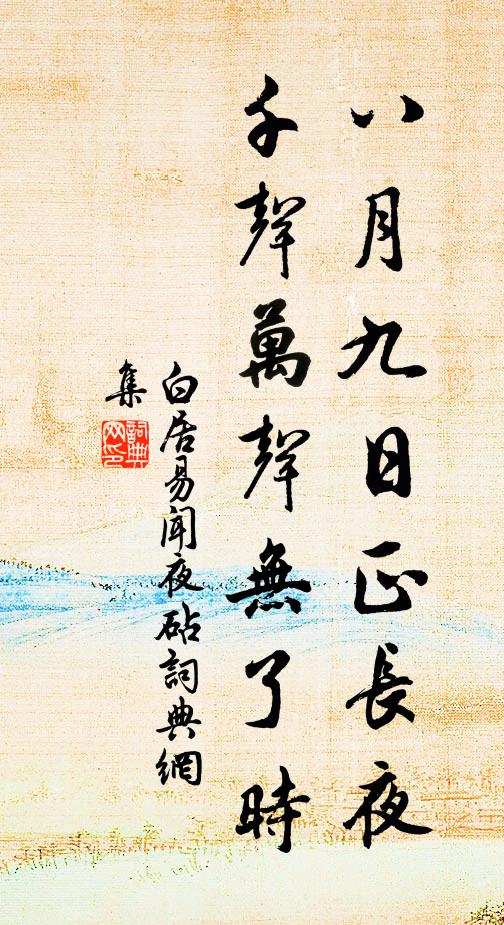 八月九日正長夜
千聲萬聲無了時
白居易聞夜砧詞典網
集
詞典
网印